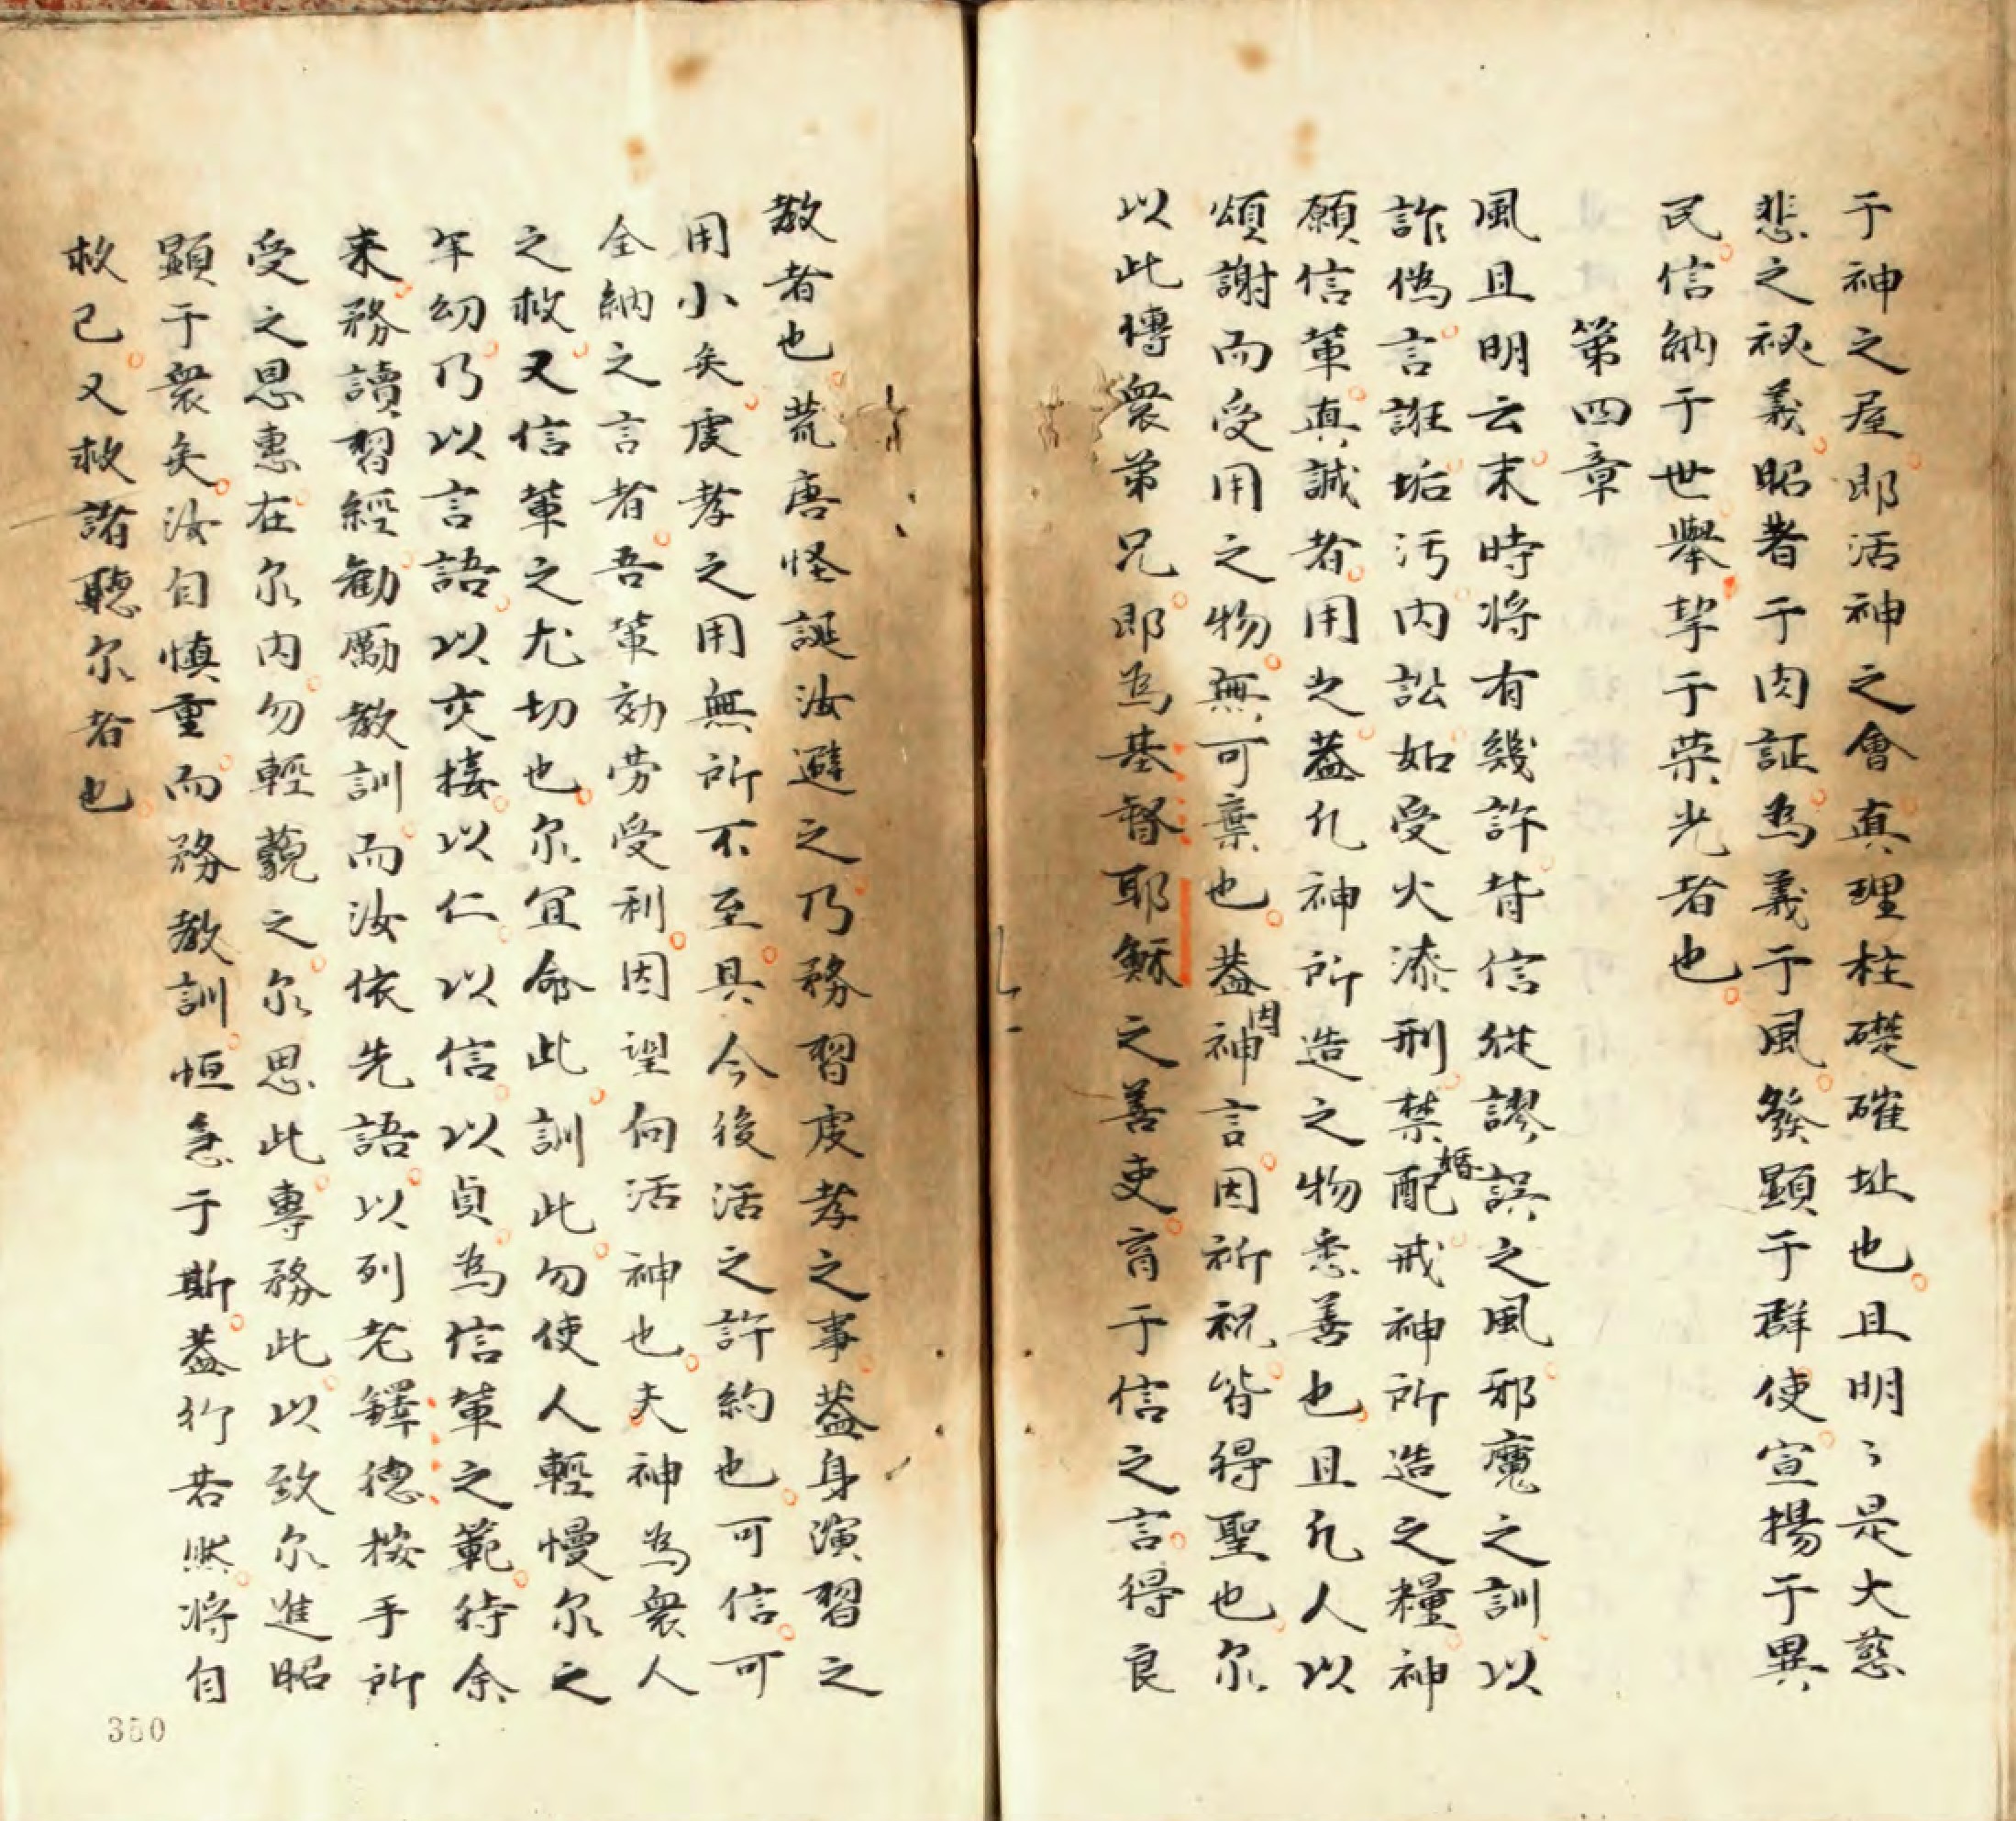 于神之屋即活神之會真理柱礎確址也且明〻是大慈
悲之秘義昭著于肉証為義于風發顯于群使宣揚于異
民信納于世舉挐于荣光者也
第四章
風且明云末時将有幾許背信從謬誤之風邪魔之訓以
詐偽言誑垢污内訟如受火漆刑禁配婚戒神所造之糧神
願信軰真誠者用之葢凢神所造之物悉善也且凢人以
頌謝而受用之物無可棄也葢因神言因祈祝皆得聖也尔
以此傳衆弟兄即為基督耶穌之善吏育于信之言得良
教者也荒唐怪誕汝避之乃務習虔孝之事葢身演習之
用小矣虔孝之用無所不至具今後活之許約也可信可
全納之言者吾軰効劳受利因望向活神也夫神為衆人
之救又信軰之尤切也尔宜命此訓此勿使人輕慢尔之
年幼乃以言語以交接以仁以信以貞為信軰之範待余
来務讀習經勸勵教訓而汝依先語以列老鐸德按手所
受之恩惠在尔内勿輕藐之尔思此專務此以致尔進昭
顯于衆矣汝自慎重而務教訓恒急于斯葢行若然将自
救己又救諸聽尔者也
350